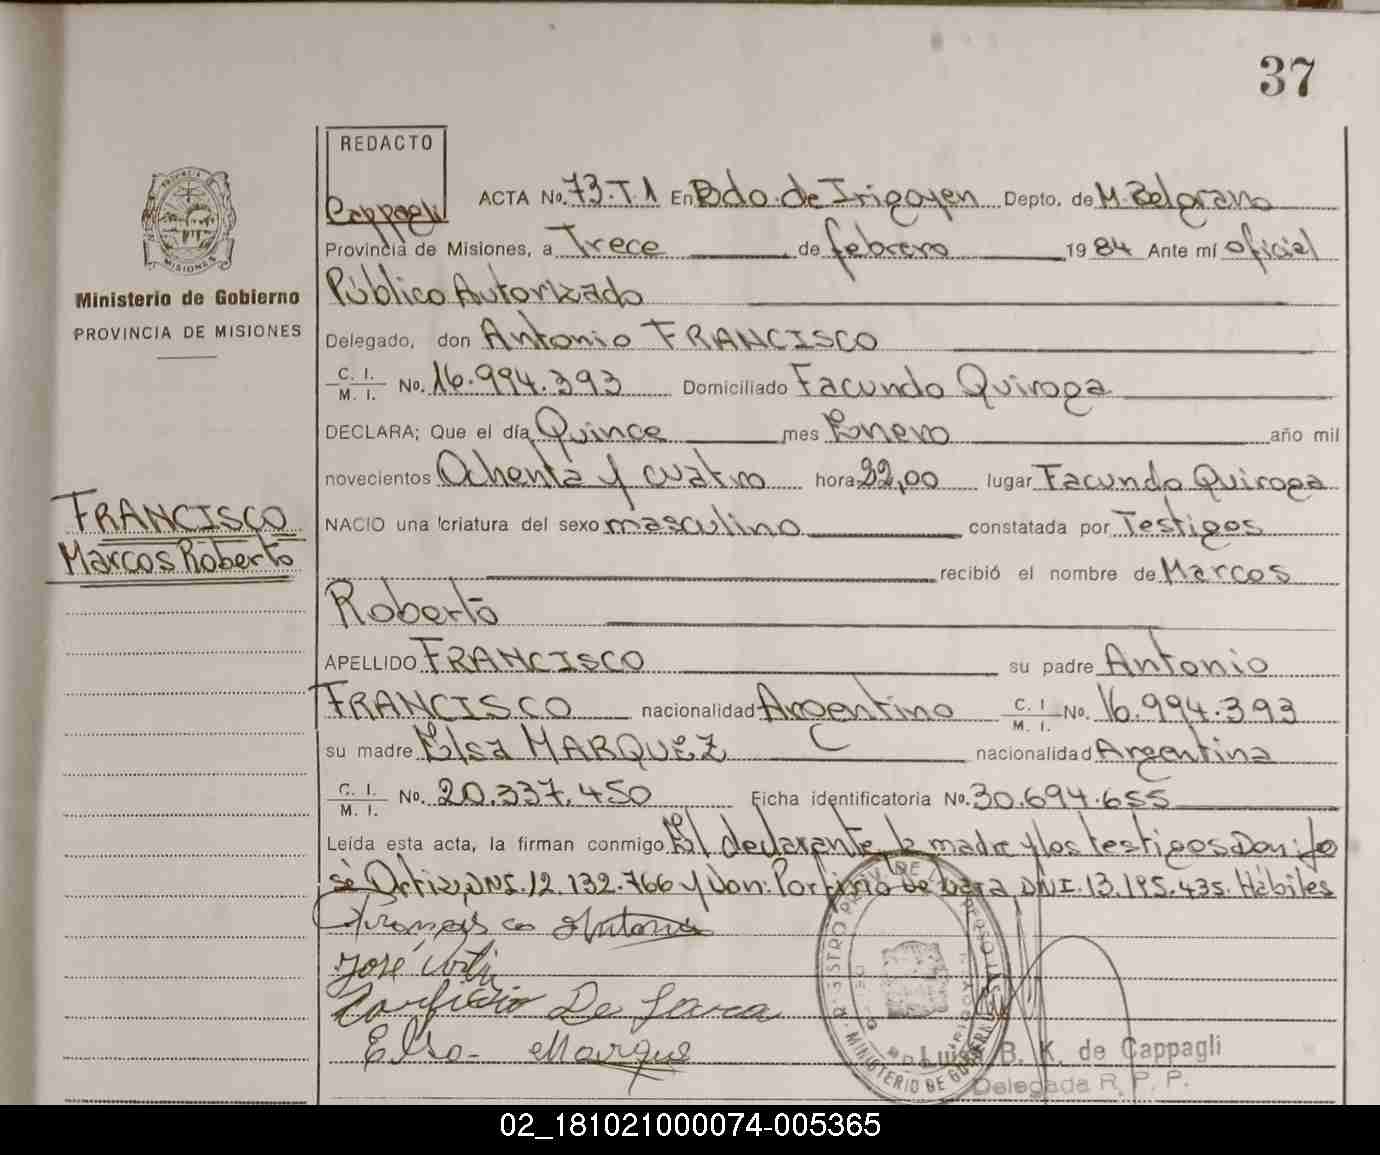 37
REDACTO
Cappagli
ACTA No. 73.T.1 En Bdo. de Irigoyen Depto. de M. Belgrano
Provincia de Misiones, a Trece de febrero 1984 Ante mí oficial
Público Autorizado
Delegado, don Antonio FRANCISCO
C. I. M. I. No. 16.994.393 Domiciliado Facundo Quiroga
DECLARA; Que el día Quince mes Enero año mil
novecientos Ochenta y cuatro hora 22,00 lugar Facundo Quiroga
NACIO una criatura del sexo masculino constatada por Testigos
recibió el nombre de Marcos
Roberto
APELLIDO FRANCISCO su padre Antonio
FRANCISCO nacionalidad Argentino C. I M. I. No. 16.994.393
su madre Elsa MARQUEZ nacionalidad Argentina
C. I. M. I. No. 20.337.450 Ficha identificatoria No. 30.694.655
Leída esta acta, la firman conmigo El declarante, la madre y los testigos Don: Jo
sé Ortiz, DNI. 12.132.766 y Don: Porfirio de Lara DNI. 13.195.435. Hábiles
Antonio
José Ortiz
De
Elsa Marque
B. K. de Cappagli
Delegada R. P. P.
MINISTERIO DE GOBIERNO
MISIONES
Ministerio de Gobierno
PROVINCIA DE MISIONES
FRANCISCO
Marcos Roberto
02_181021000074-005365